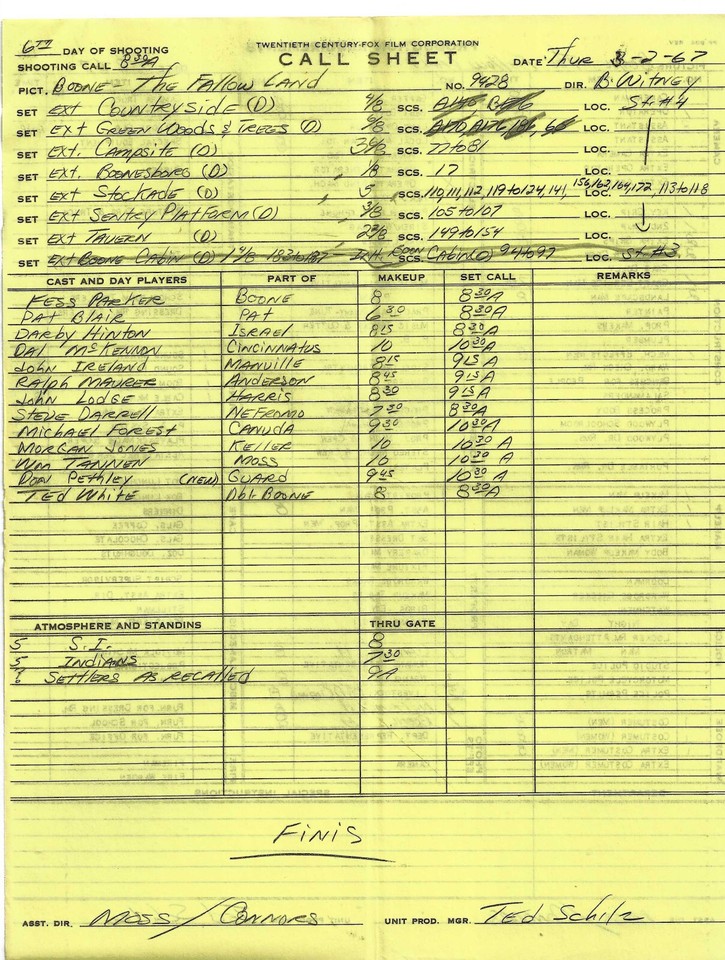 6TH DAY OF SHOOTING
TWENTIETH CENTURY-FOX FILM CORPORATION
SHOOTING CALL 8:30A
CALL SHEET
DATE Thur 3-2-67
PICT. BOONE - The Fallow Land NO. 9428 DIR. B. Witney
SET EXT Countryside (D) 4/8 SCS. LOC. St #4
SET EXT GREEN WOODS & TREES (D) 6/8 SCS. LOC.
SET EXT. CAMPSITE (D) SCS. 77 to 81 LOC.
SET EXT. BOONESBORO (D) 1/8 SCS. 17 LOC.
SET EXT STOCKADE (D) 5 SCS. 110, 111, 112, 119 to 124, 141, 156, 162, 164, 172, 113 to 118 LOC.
SET EXT SENTRY PLATFORM (D) 3/8 SCS. 105 to 107 LOC.
SET EXT TAVERN (D) 2 3/8 SCS. 149 to 154 LOC.
SET EXT BOONE CABIN (D) 1 4/8 183 to 187 - INT. BOON SCS. CABIN (D) 94 to 97 LOC. St #3
CAST AND DAY PLAYERS PART OF MAKEUP SET CALL REMARKS
FESS PARKER BOONE 8 8 30 A
PAT BLAIR PAT 6 30 8 30 A
DARBY HINTON ISRAEL 8 15 8 30 A
DAL McKENNON CINCINNATUS 10 10 30 A
JOHN IRELAND MANVILLE 8 15 9 15 A
RALPH MAURER ANDERSON 8 45 9 15 A
JOHN LODGE HARRIS 8 30 9 15 A
STEVE DARRELL NEFROMO 7 30 8 30 A
MICHAEL FOREST CANUDA 9 30 10 30 A
MORGAN JONES KELLER 10 10 30 A
WM TANNEN MOSS 10 10 30 A
DON PETHLEY (NEW) GUARD 9 45 10 30 A
TED WHITE Dbl-BOONE 8 8 30 A
ATMOSPHERE AND STANDINS THRU GATE
5 S.I. 8
5 INDIANS 7 30
? SETTLERS AS RECALLED 9A
FINIS
ASST. DIR. MOSS / CONNORS UNIT PROD. MGR. TED Schilz